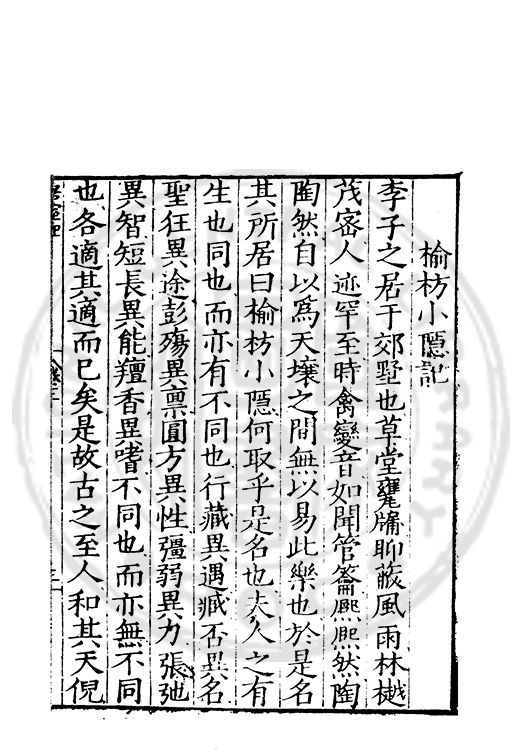 榆枋小隱記
李子之居于郊墅也草堂甕牖聊蔽風雨林樾
茂密人迹罕至時禽變音如聞管籥熙熙然陶
陶然自以為天壤之間無以易此樂也於是名
其所居曰榆枋小隱何取乎是名也夫人之有
生也同也而亦有不同也行藏異遇臧否異名
聖狂異途彭殤異禀圓方異性彊弱異力張弛
異智短長異能羶香異嗜不同也而亦無不同
也各適其適而已矣是故古之至人和其天倪